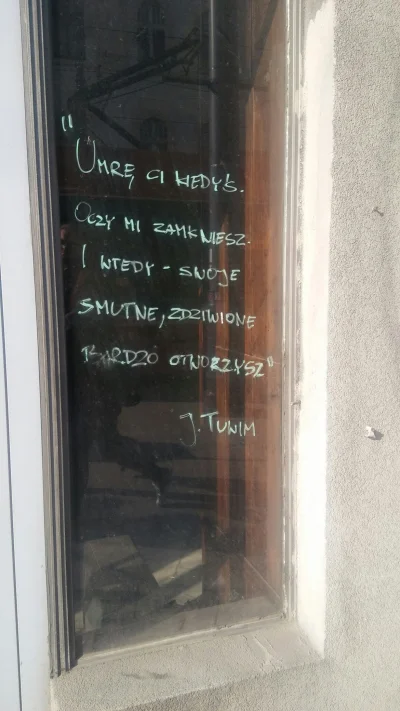 "UMRĘ CI KIEDYŚ.
OCZY MI ZAMKNIESZ.
I WTEDY - SWOJE
SMUTNE, ZDZIWIONE
BARDZO OTWORZYSZ"
J. TUWIM